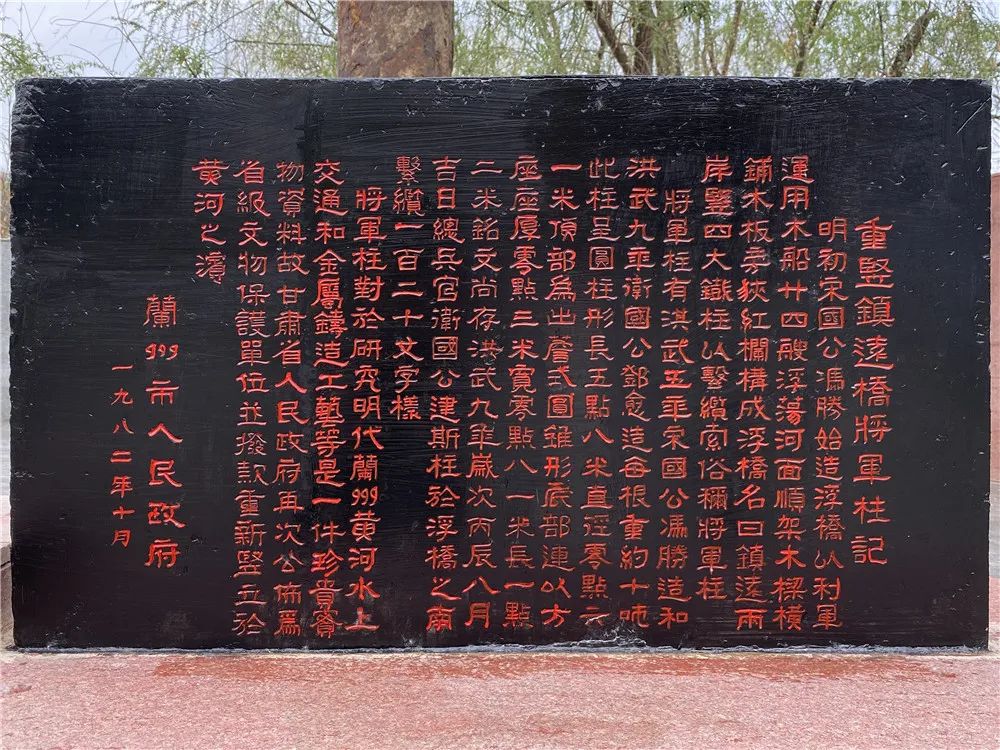 重竪鎮遠橋將軍柱記
明初宋國公馮勝始造浮橋以利軍
運用木船廿四艘浮蕩河面順架木樑橫
鋪木板紅欄構成浮橋名曰鎮遠兩
岸竪四大鐵柱以繫纜索俗稱將軍柱
將軍柱有洪武五年宋國公馮勝造和
洪武九年衛國公鄧愈造每根重約十噸
此柱呈圓柱形長五點八米直徑零點六
一米頂部為出簷式圓錐形底部連以方
座座厚零點三米寬零點八一米長一點
二米銘文尚存洪武九年歲次丙辰八月
吉日總兵官衛國公建斯柱於浮橋之南
繫纜一百二十丈字樣
將軍柱對於研究明代蘭州黃河水上
交通和金屬鑄造工藝等是一件珍貴實
物資料故甘肅省人民政府再次公佈為
省級文物保護單位並撥款重新竪立於
黃河之濱
蘭州市人民政府
一九八二年十月